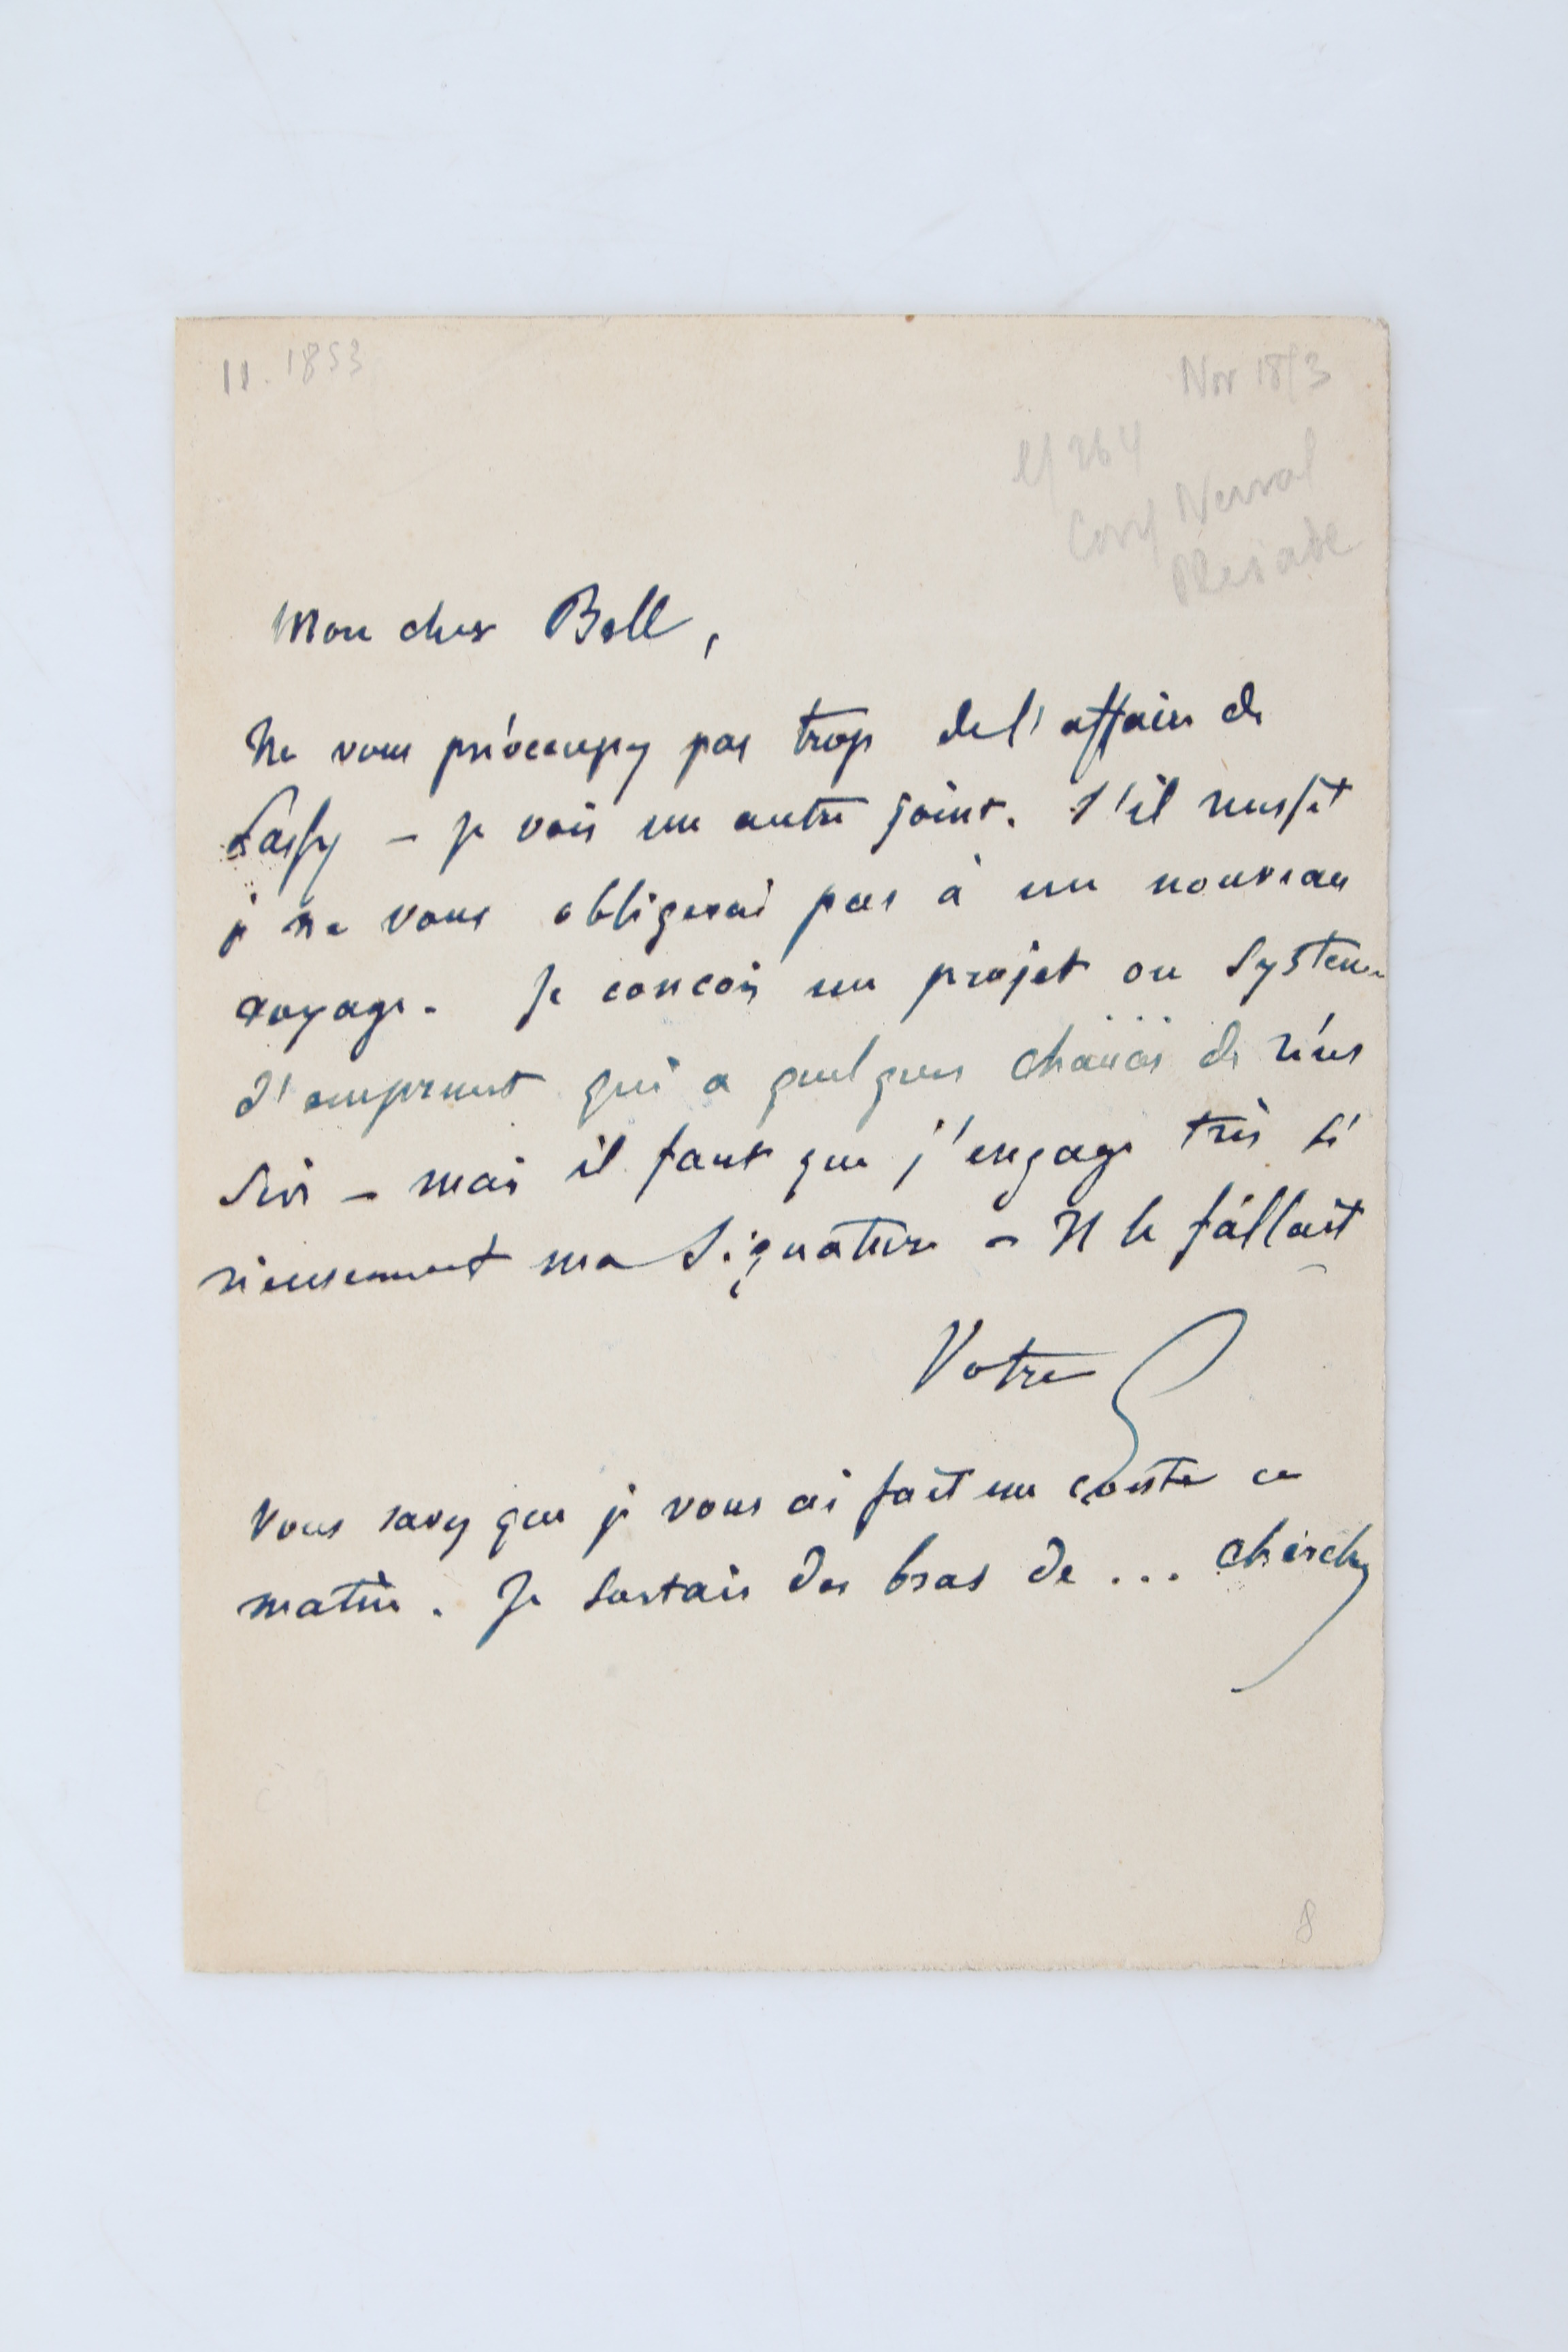 11. 1853
Nov 1853
264
Corr Nerval
Pleiade
Mon cher Bell,
Ne vous préoccupez pas trop de l'affaire de
Passy – je vois un autre joint. S'il réussit
je ne vous obligerai pas à un nouveau
voyage. Je conçois un projet ou système
d'emprunt qui a quelques chances de réus
sir – mais il faut que j'engage très sé
rieusement ma signature – Il le fallait
Votre
Vous savez que je vous ai fait un conte ce
matin. Je sortais des bras de ... cherchez
8